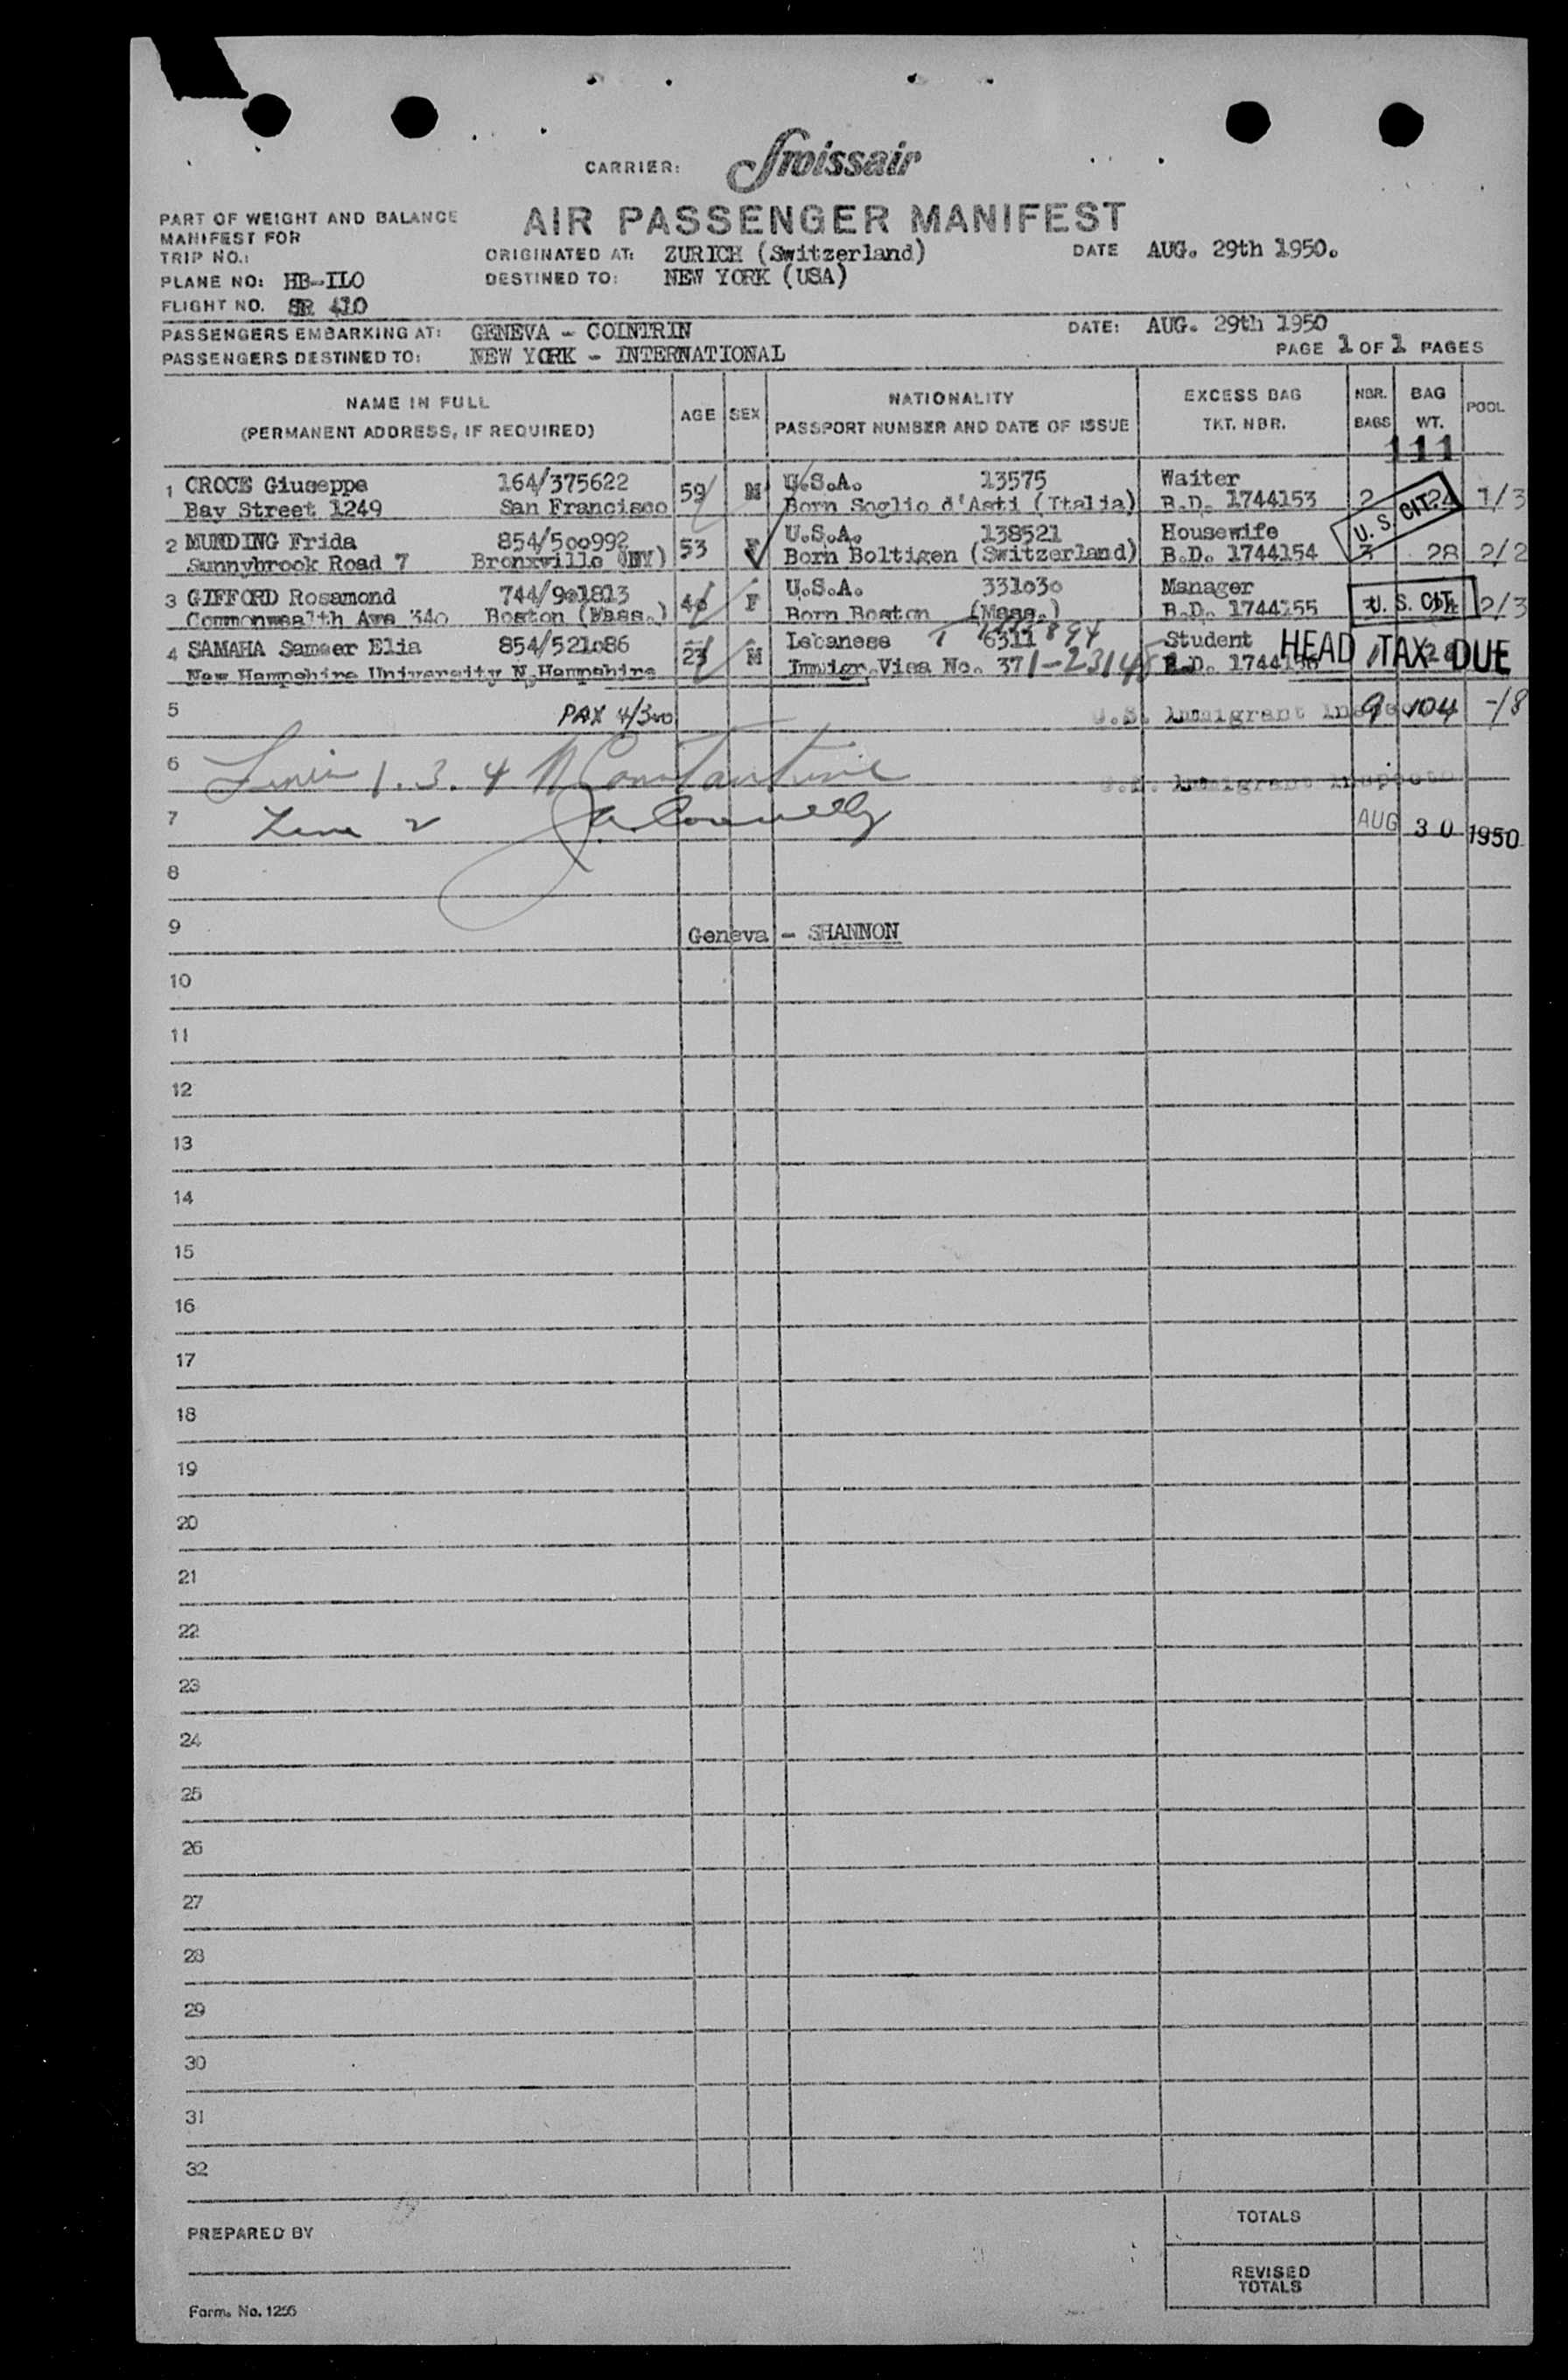 CARRIER: Swissair
PART OF WEIGHT AND BALANCE
MANIFEST FOR
AIR PASSENGER MANIFEST
TRIP NO.:
ORIGINATED AT: ZURICH (Switzerland) DATE AUG. 29th 1950.
PLANE NO: HB-ILO DESTINED TO: NEW YORK (USA)
FLIGHT NO. SR 410
PASSENGERS EMBARKING AT: GENEVA - COINTRIN DATE: AUG. 29th 1950
PASSENGERS DESTINED TO: NEW YORK - INTERNATIONAL PAGE 1 OF 1 PAGES
NAME IN FULL AGE SEX NATIONALITY EXCESS BAG NBR. BAG POOL
(PERMANENT ADDRESS, IF REQUIRED) PASSPORT NUMBER AND DATE OF ISSUE TKT. NBR. BAGS WT.
111
1 CROCE Giuseppe 164/375622 59 M U.S.A. 13575 Waiter
Bay Street 1249 San Francisco Born Soglio d'Asti (Italia) B.D. 1744153 2 24 1/3
U. S. CIT.
2 MUNDING Frida 854/500992 53 F U.S.A. 138521 Housewife
Sunnybrook Road 7 Bronxville (NY) Born Boltigen (Switzerland) B.D. 1744154 3 28 2/2
3 GIFFORD Rosamond 744/901813 F U.S.A. 331030 Manager
Commonwealth Ave 340 Boston (Mass.) Born Boston (Mass.) B.D. 1744155 U. S. CIT. 2/3
4 SAMAHA Sameer Elia 854/521086 23 M Lebanese 6311 Student HEAD TAX DUE
New Hampshire University N.Hampshire Immigr.Visa No. 371-23148 B.D. 1744156 1 28
5 PAX 4/300 U.S. Immigrant Inspector 9 104 -/8
6 Lines 1. 3. 4 N Constantine U.S. Immigrant Inspector
7 Line 2 J.A. Connelly AUG 30 1950
8
9 Geneva - SHANNON
10
11
12
13
14
15
16
17
18
19
20
21
22
23
24
25
26
27
28
29
30
31
32
TOTALS
PREPARED BY
REVISED
TOTALS
Form. No. 1256